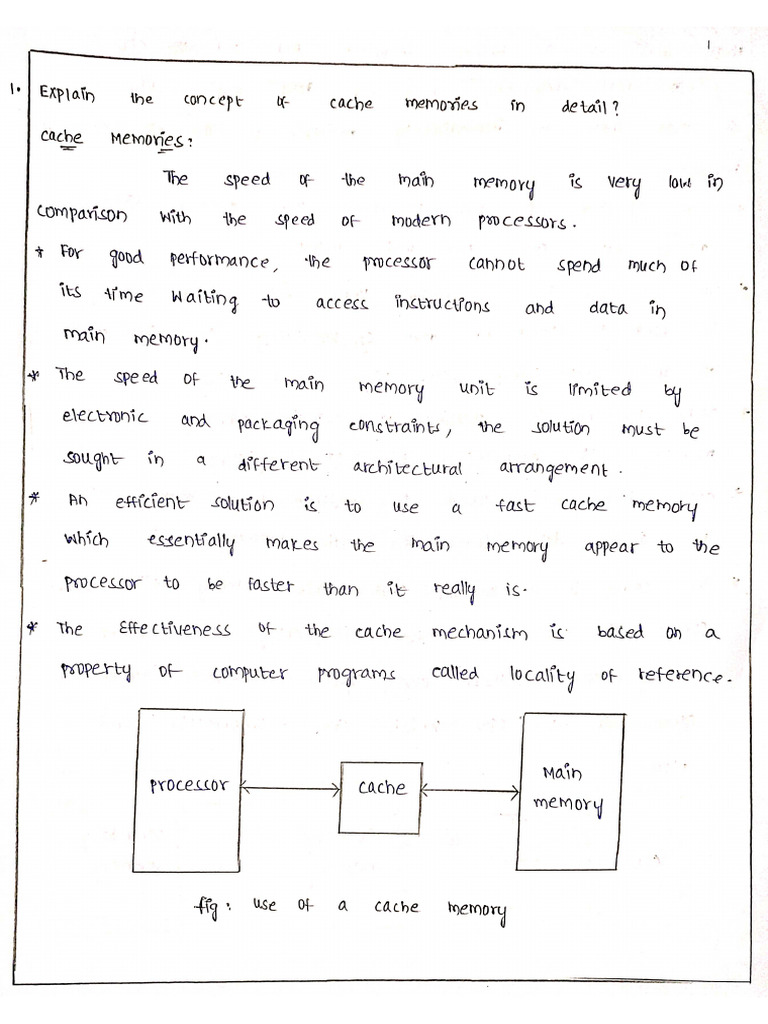 1
1. Explain the concept of cache memories in detail?
Cache Memories:
The speed of the main memory is very low in
comparison with the speed of modern processors.
* For good performance, the processor cannot spend much of
its time waiting to access instructions and data in
main memory.
* The speed of the main memory unit is limited by
electronic and packaging constraints, the solution must be
sought in a different architectural arrangement.
* An efficient solution is to use a fast cache memory
which essentially makes the main memory appear to the
processor to be faster than it really is.
* The Effectiveness of the cache mechanism is based on a
property of computer programs called locality of reference.
processor
cache
Main
memory
fig: use of a cache memory